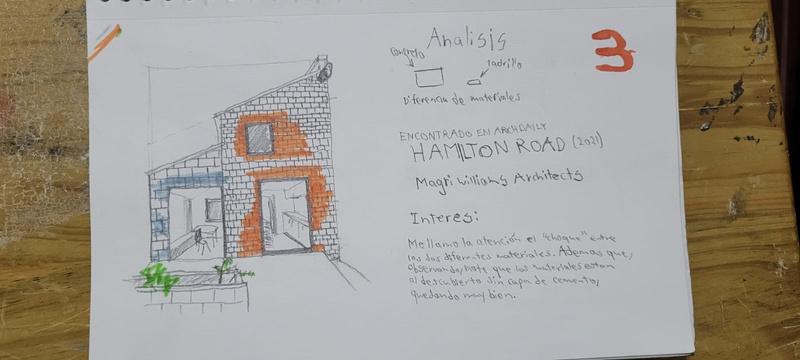 Analisis
3
concreto
ladrillo
Diferencia de materiales
ENCONTRADO EN ARCHDAILY
HAMILTON ROAD (2021)
Magri Williams Architects
Interes:
Me llamo la atención el "choque" entre
los dos diferentes materiales. Ademas que,
observando, note que los materiales estan
al descubierto sin capa de cemento,
quedando muy bien.